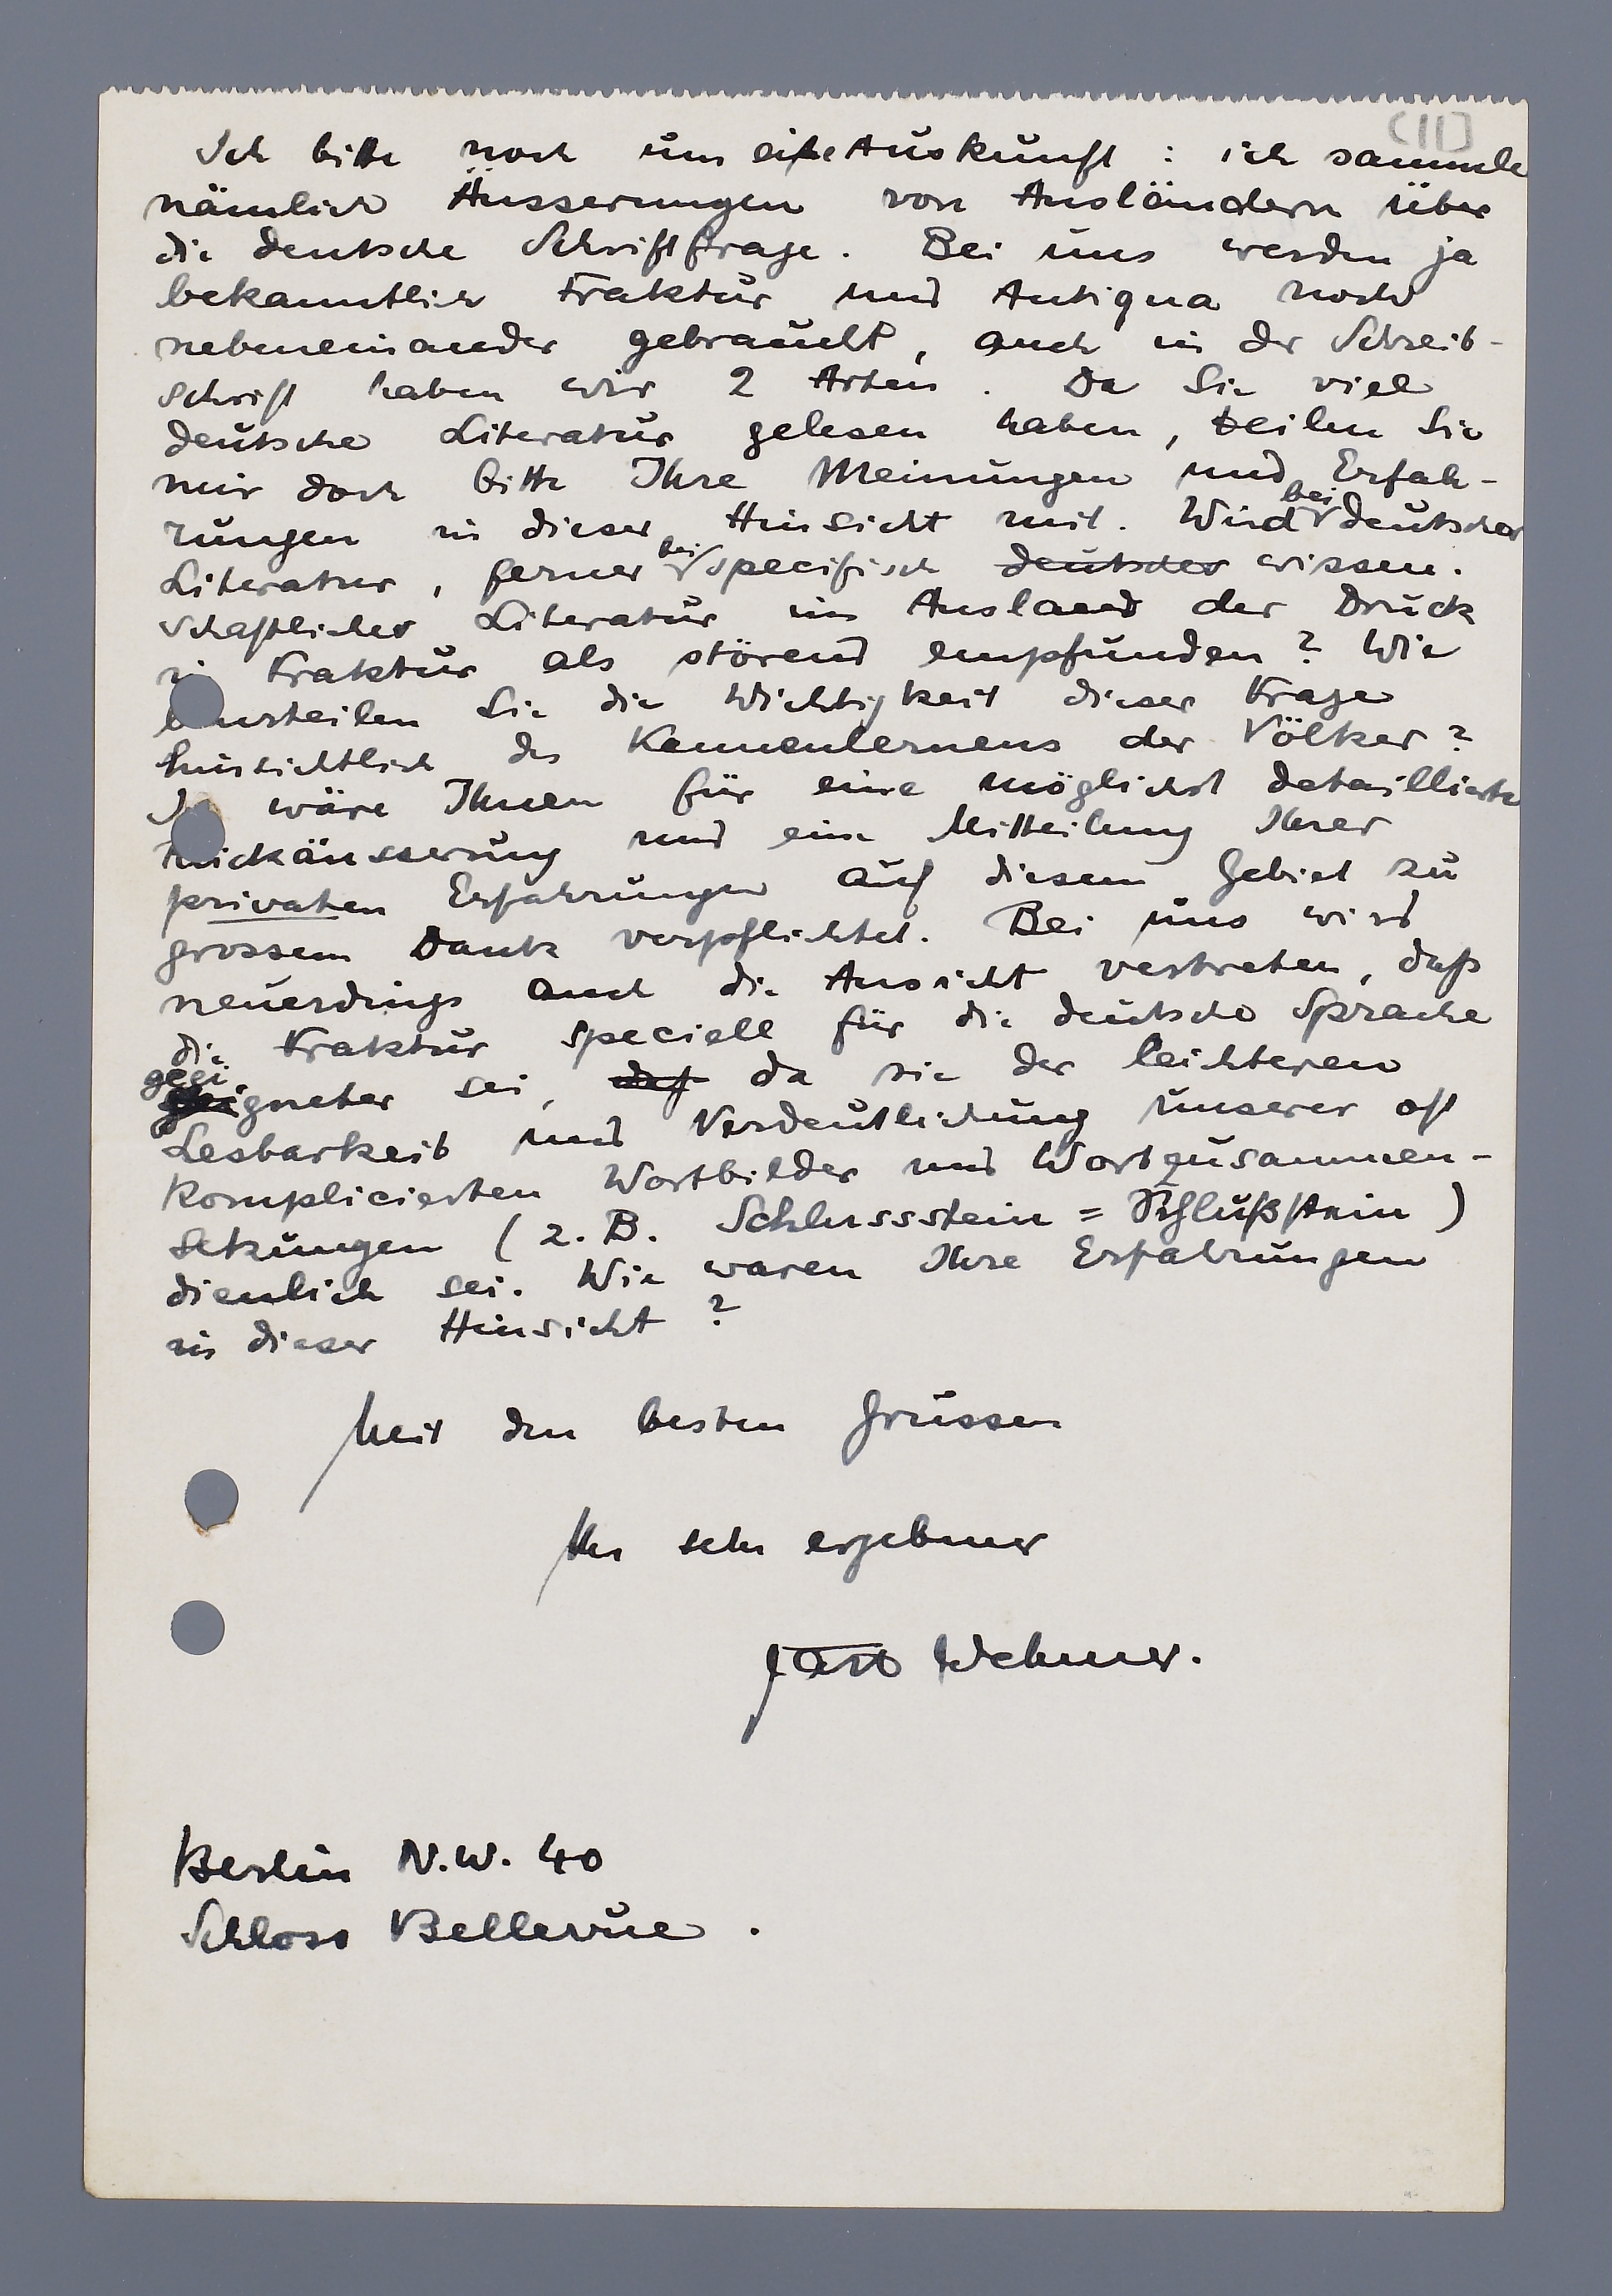 (II]
Ich bitte noch um eine Auskunft : ich sammle
nämlich Äusserungen von Ausländern über
die deutsche Schriftfrage. Bei uns werden ja
bekanntlich Fraktur und Antiqua noch
nebeneinander gebraucht, auch in der Schreib-
schrift haben wir 2 Arten. Da Sie viel
deutsche Literatur gelesen haben, teilen Sie
mir doch bitte Ihre Meinungen und Erfah-
rungen in dieser Hinsicht mit. Wird bei deutscher
Literatur, ferner bei specifisch deutscher wissen-
schaftlicher Literatur im Ausland der Druck
in Fraktur als störend empfunden? Wie
beurteilen Sie die Wichtigkeit dieser Frage
hinsichtlich des Kennenlernens der Völker?
Ich wäre Ihnen für eine möglichst detaillierte
Rückäusserung und eine Mitteilung Ihrer
privaten Erfahrungen auf diesem Gebiet zu
grossem Dank verpflichtet. Bei uns wird
neuerdings auch die Ansicht vertreten, daß
die Fraktur speciell für die deutsche Sprache
geeigneter sei, daß da sie der leichteren
Lesbarkeit und Verdeutlichung unserer oft
komplicierten Wortbilder und Wortzusammen-
setzungen (z.B. Schlussstein = Schlußstein)
dienlich sei. Wie waren Ihre Erfahrungen
in dieser Hinsicht?
Mit den besten Grüssen
Ihr sehr ergebener
Wehmer.
Berlin N.W. 40
Schloss Bellevue.